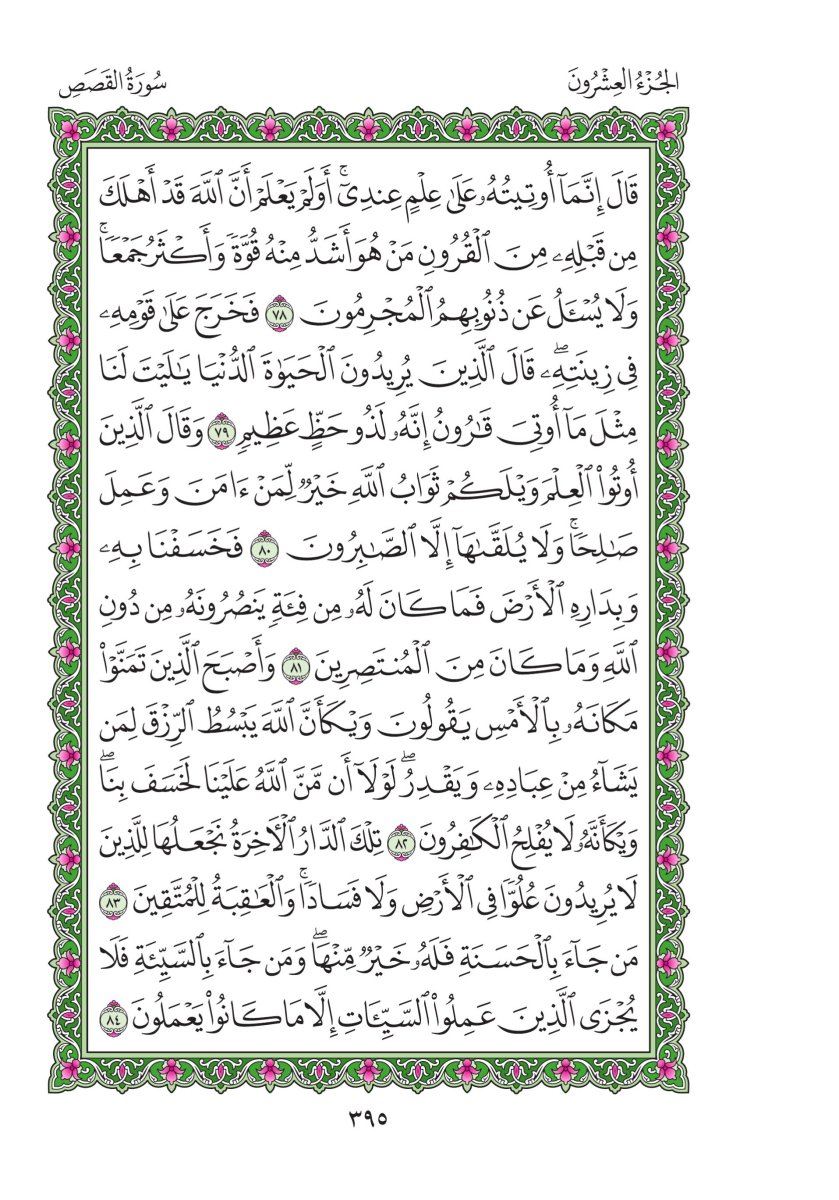 الجُزْءُ العِشْرُونَ
سُورَةُ القَصَصِ
قَالَ إِنَّمَآ أُوتِيتُهُۥ عَلَىٰ عِلْمٍ عِندِيٓۚ أَوَلَمْ يَعْلَمْ أَنَّ ٱللَّهَ قَدْ أَهْلَكَ
مِن قَبْلِهِۦ مِنَ ٱلْقُرُونِ مَنْ هُوَ أَشَدُّ مِنْهُ قُوَّةً وَأَكْثَرُ جَمْعًاۚ
وَلَا يُسْـَٔلُ عَن ذُنُوبِهِمُ ٱلْمُجْرِمُونَ ٧٨ فَخَرَجَ عَلَىٰ قَوْمِهِۦ
فِى زِينَتِهِۦۖ قَالَ ٱلَّذِينَ يُرِيدُونَ ٱلْحَيَوٰةَ ٱلدُّنْيَا يَـٰلَيْتَ لَنَا
مِثْلَ مَآ أُوتِىَ قَـٰرُونُ إِنَّهُۥ لَذُو حَظٍّ عَظِيمٍ ٧٩ وَقَالَ ٱلَّذِينَ
أُوتُوا۟ ٱلْعِلْمَ وَيْلَكُمْ ثَوَابُ ٱللَّهِ خَيْرٌ لِّمَنْ ءَامَنَ وَعَمِلَ
صَـٰلِحًاۚ وَلَا يُلَقَّىٰهَآ إِلَّا ٱلصَّـٰبِرُونَ ٨٠ فَخَسَفْنَا بِهِۦ
وَبِدَارِهِ ٱلْأَرْضَ فَمَا كَانَ لَهُۥ مِن فِئَةٍ يَنصُرُونَهُۥ مِن دُونِ
ٱللَّهِ وَمَا كَانَ مِنَ ٱلْمُنتَصِرِينَ ٨١ وَأَصْبَحَ ٱلَّذِينَ تَمَنَّوْا۟
مَكَانَهُۥ بِٱلْأَمْسِ يَقُولُونَ وَيْكَأَنَّ ٱللَّهَ يَبْسُطُ ٱلرِّزْقَ لِمَن
يَشَآءُ مِنْ عِبَادِهِۦ وَيَقْدِرُۖ لَوْلَآ أَن مَّنَّ ٱللَّهُ عَلَيْنَا لَخَسَفَ بِنَاۖ
وَيْكَأَنَّهُۥ لَا يُفْلِحُ ٱلْكَـٰفِرُونَ ٨٢ تِلْكَ ٱلدَّارُ ٱلْـَٔاخِرَةُ نَجْعَلُهَا لِلَّذِينَ
لَا يُرِيدُونَ عُلُوًّا فِى ٱلْأَرْضِ وَلَا فَسَادًاۚ وَٱلْعَـٰقِبَةُ لِلْمُتَّقِينَ ٨٣
مَن جَآءَ بِٱلْحَسَنَةِ فَلَهُۥ خَيْرٌ مِّنْهَاۖ وَمَن جَآءَ بِٱلسَّيِّئَةِ فَلَا
يُجْزَى ٱلَّذِينَ عَمِلُوا۟ ٱلسَّيِّـَٔاتِ إِلَّا مَا كَانُوا۟ يَعْمَلُونَ ٨٤
٣٩٥